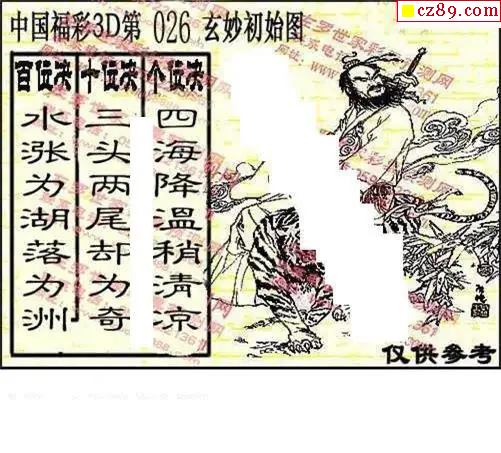 cz89.com
中国福彩3D第 026 玄妙初始图
百位决 十位决 个位决
水涨为湖落为洲
三头两尾却为奇
四海降温稍清凉
仅供参考